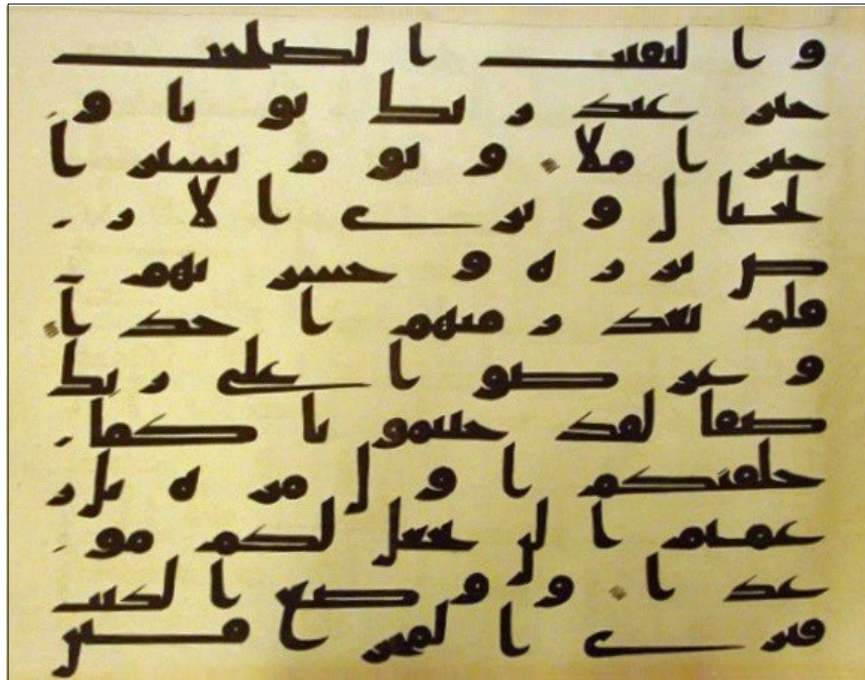 والبقيت الصلحت
خير عند ربك ثوابا و
خير املا ويوم نسير ا
لجبال وترى الار
ض برزة وحشرنهم
فلم نغدر منهم احدا
وعرضوا على ربك
صفا لقد جيتمونا كما
خلقنكم اول مرة بل ز
عمتم الن نجعل لكم مو
عدا ووضع الكتب
فترى المجرمين